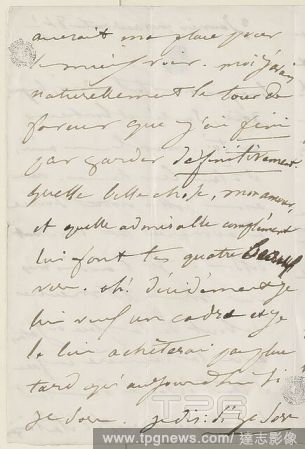 aurait ma place pour
mieux voir. moi j'avais
naturellement le tour de
faveur que j'ai fini
par garder définitivement.
Quelle belle chose, mon amour,
et quelle admirable complément
lui font tes quatre beaux
vers. oh! décidément je
lui veux un cadre et je
le lui achèterai pas plus
tard qu'aujourd'hui si
je sors. je dis: si je sors
TPG
www.tpgnews.com/達志影像